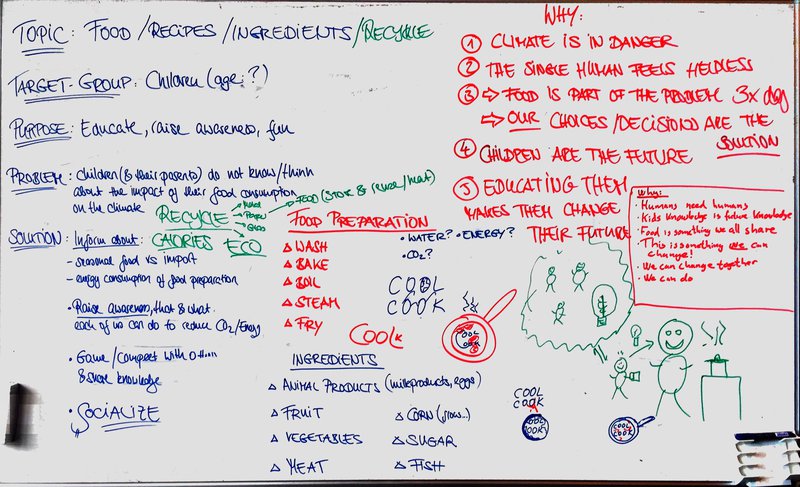 TOPIC: FOOD/RECIPES/INGREDIENTS/RECYCLE
TARGET-GROUP: Children (age: ?)
PURPOSE: Educate, raise awareness, fun
PROBLEM: children (& their parents) do not know/think
about the impact of their food consumption
on the climate
SOLUTION: Inform about:
- seasonal food vs import
- energy consumption of food preparation
• Raise awareness, that & what
each of us can do to reduce CO2/Energy
• Game/compete with others
& share knowledge
• SOCIALIZE
RECYCLE
FOOD (store & rural/meat)
CALORIES ECO
FOOD PREPARATION
△ WASH
△ BAKE
△ BOIL
△ STEAM
△ FRY
• WATER? • ENERGY?
• CO2?
COOL
COOK
COOLK
COOL
COOK
INGREDIENTS
△ ANIMAL PRODUCTS (milkproducts, eggs)
△ FRUIT
△ VEGETABLES
△ MEAT
△ CORN
△ SUGAR
△ FISH
WHY:
① CLIMATE IS IN DANGER
② THE SINGLE HUMAN FEELS HELPLESS
③ ⇒ FOOD IS PART OF THE PROBLEM 3x day
⇒ OUR CHOICES/DECISIONS ARE THE
SOLUTION
④ CHILDREN ARE THE FUTURE
5 EDUCATING THEM
MAKES THEM CHANGE
THEIR FUTURE
Why:
• Humans need humans
• Kids knowledge is future knowledge
• Food is something we all share
• This is something we can
change!
• We can change together
• We can do
COOL
COOK
COOL
COOK
COOL
COOK